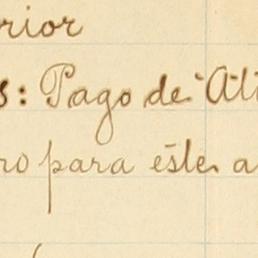 rior
s: Pago de Ati
ro para éste a